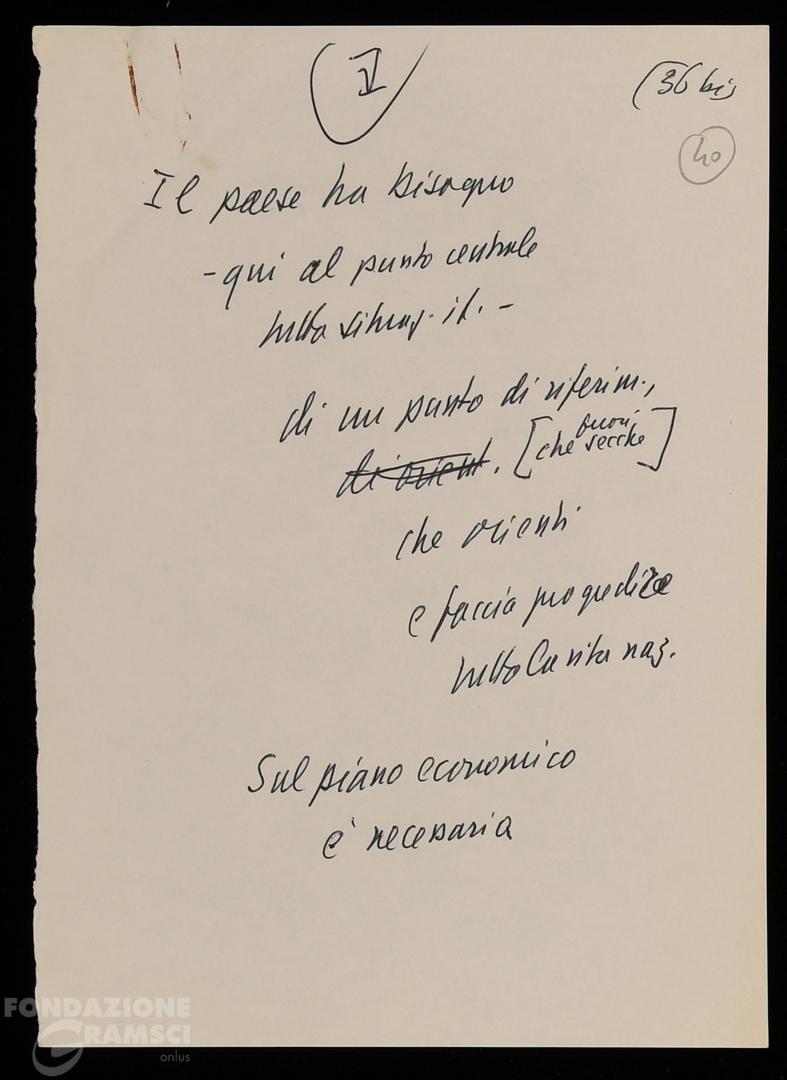 I
(36 bis
40
Il paese ha bisogno
- qui al punto centrale
tutta situaz. it. -
di un punto di riferim.,
di orient. [che fuori secche]
che orienti
e faccia progredire
tutta la vita naz.
Sul piano economico
è necessaria
FONDAZIONE
GRAMSCI
onlus